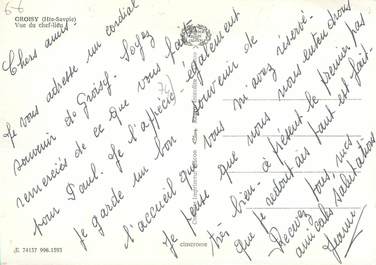 6-6
GROISY (Hte-Savoie)
Vue du chef-lieu
Chers amis.
Je vous adresse un cordial
souvenir de Groisy. Soyez
remerciés de ce que vous faites
pour Paul. Je l'apprécie également
Je garde un bon souvenir de
l'accueil que vous m'avez réservé.
Je pense que nous nous entendrons
très bien. à présent le premier pas
que je redoutais tant est fait.
Recevez tous, mes
amicales salutations
(74)
E 74137 996.1593
CIM